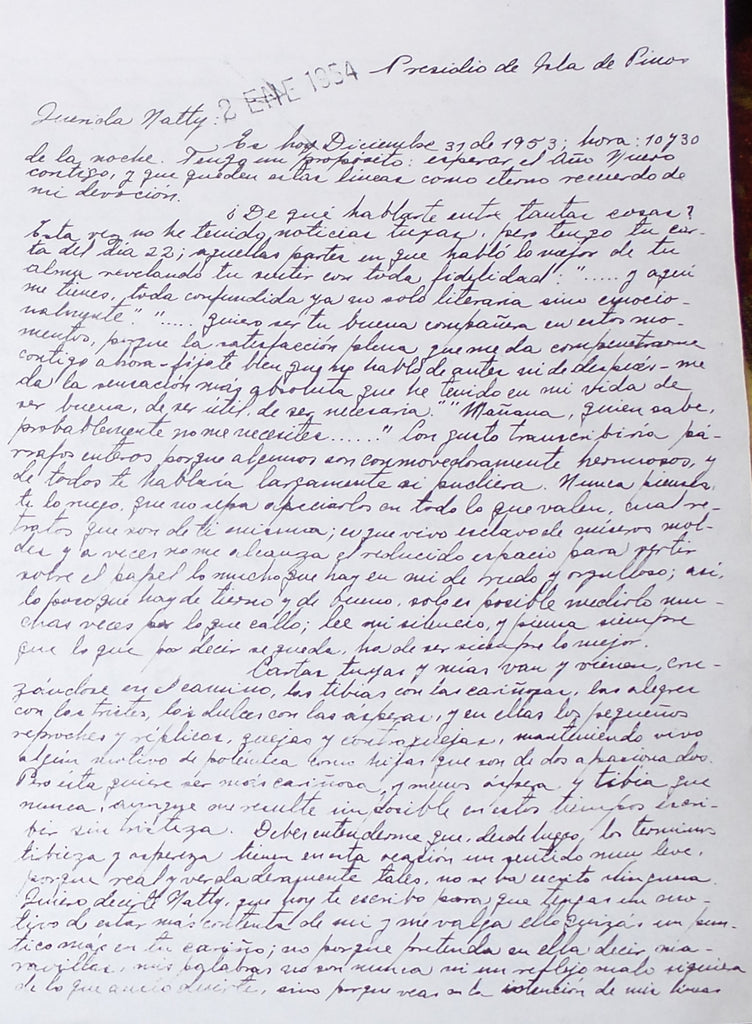 Presidio de Isla de Pinos
2 ENE 1954
Querida Natty:
Es hoy Diciembre 31 de 1953; hora: 10 y 30
de la noche. Tengo un propósito: esperar el Año Nuevo
contigo, y que queden estas líneas como eterno recuerdo de
mi devoción.
¿De qué hablarte entre tantas cosas?
Esta vez no he tenido noticias tuyas, pero tengo tu car-
ta del día 22; aquellas partes en que habló lo mejor de tu
alma revelando tu sentir con toda fidelidad: "..... y aquí
me tienes, toda confundida ya no solo literaria sino emocio-
nalmente." "..... quiero ser tu buena compañera en estos mo-
mentos, porque la satisfacción plena que me da compenetrarme
contigo ahora - fíjate bien que no hablo de antes ni de después - me
da la sensación más absoluta que he tenido en mi vida de
ser buena, de ser útil, de ser necesaria." "Mañana, quien sabe,
probablemente no me necesites......" Con gusto transcribiría pá-
rrafos enteros porque algunos son conmovedoramente hermosos, y
de todos te hablaría largamente si pudiera. Nunca pienses,
te lo ruego, que no sepa apreciarlos en todo lo que valen, cual re-
tratos que son de ti misma; es que vivo esclavo de míseros mol-
des y a veces no me alcanza el reducido espacio para vertir
sobre el papel lo mucho que hay en mi de rudo y orgulloso; así,
lo poco que hay de tierno y de bueno, solo es posible medirlo mu-
chas veces por lo que callo; lee mi silencio, y piensa siempre
que lo que por decir se queda, ha de ser siempre lo mejor.
Cartas tuyas y mías van y vienen, cru-
zándose en el camino, las tibias con las cariñosas, las alegres
con las tristes, las dulces con las ásperas, y en ellas los pequeños
reproches y réplicas, quejas y contraquejas, manteniendo vivo
algún motivo de polémica como hijas que son de dos apasionados.
Pero esta quiere ser más cariñosa, y menos áspera y tibia que
nunca, aunque me resulte imposible en estos tiempos escri-
bir sin tristeza. Debes entenderme que, desde luego, los términos
tibieza y aspereza tienen en esta ocasión un sentido muy leve,
porque real y verdaderamente tales, no se ha escrito ninguna.
Quiero decirte Natty, que hoy te escribo para que tengas un mo-
tivo de estar más contenta de mi y me valga ello quizás un pun-
tico mas en tu cariño; no porque pretenda en ella decir ma-
ravillas, mis palabras no son nunca ni un reflejo malo siquiera
de lo que anhelo decirte, sino porque veas en la intención de mis líneas